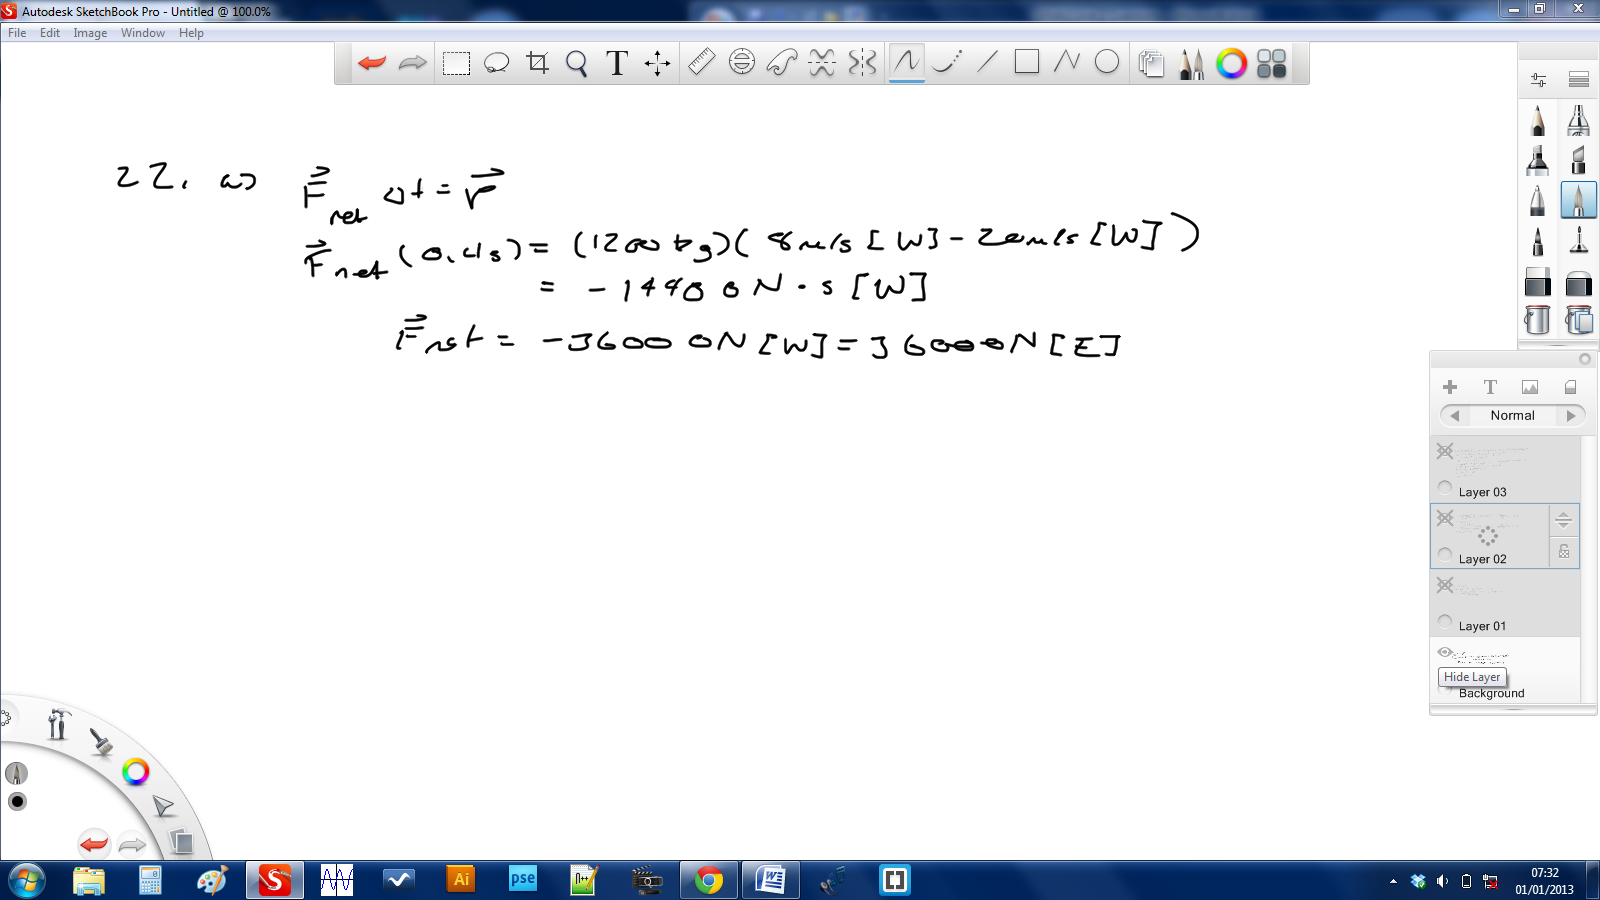 Autodesk SketchBook Pro - Untitled @ 100.0%
File Edit Image Window Help
22. a) F⃗net Δt = p⃗
F⃗net (0.4s) = (1200 kg)( 8m/s [W] - 20m/s [W] )
= -14400N·s [W]
F⃗net = -36000N [W] = 36000N [E]
Normal
Layer 03
Layer 02
Layer 01
Hide Layer
Background
Ai pse
07:32
01/01/2013